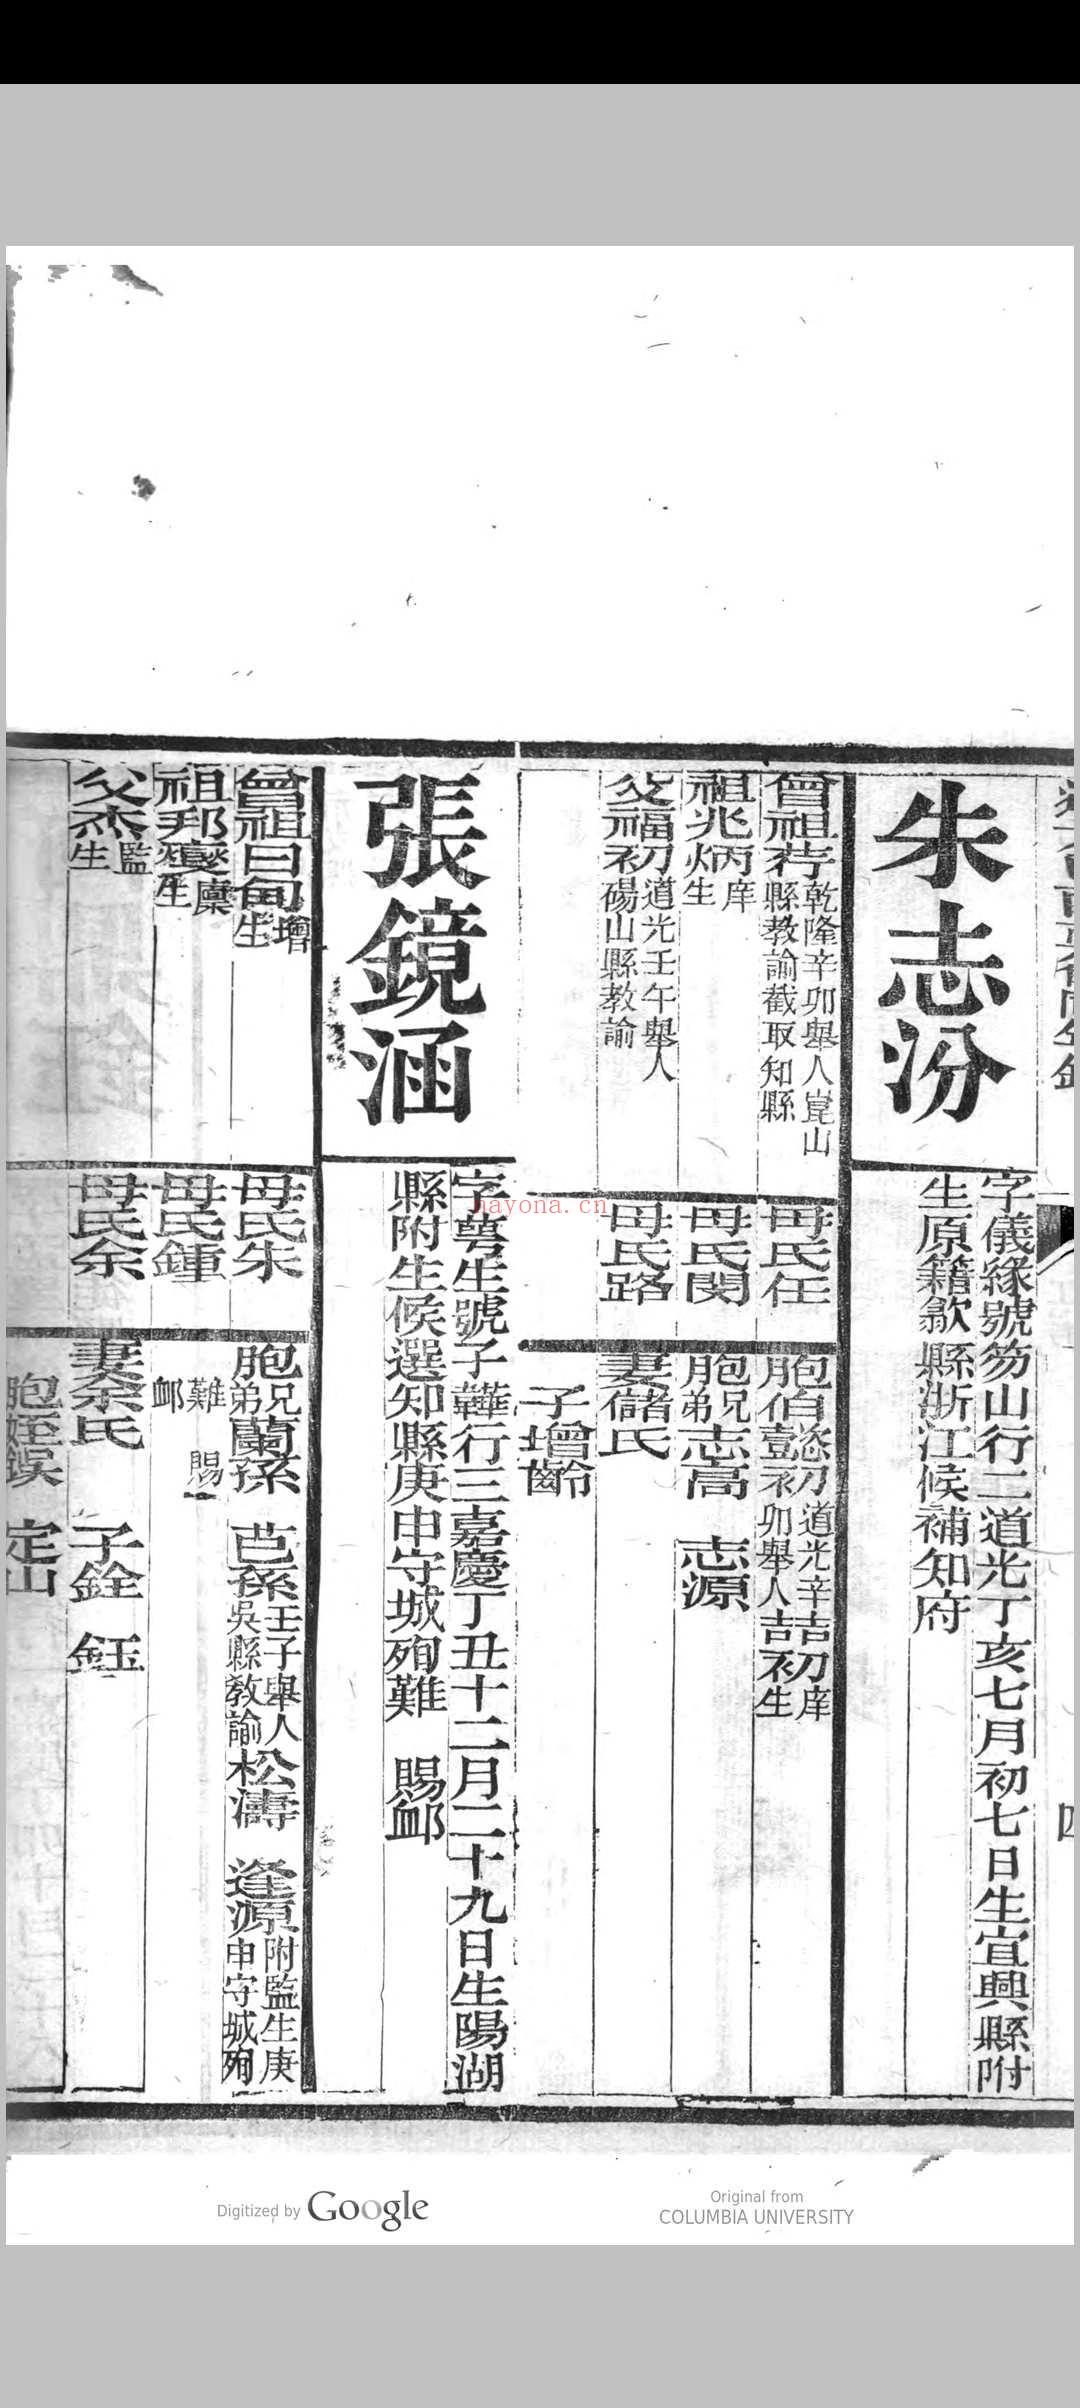 朱志汾
字儀緣號笏山行二道光丁亥七月初七日生宜興縣附
生原籍歙縣浙江候補知府
曾祖荇乾隆辛卯舉人崑山
縣教諭截取知縣
祖兆炳庠
生
父福初道光壬午舉人
碭山縣教諭
母氏任
母氏閔
母氏路
胞伯懿初道光辛
卯舉人喆初庠
生
胞兄
弟志高 志源
妻儲氏
子增齡
張鏡涵
字萼生號子韡行三嘉慶丁丑十二月二十九日生陽湖
縣附生候選知縣庚申守城殉難 賜卹
曾祖曰甸增
生
祖邦燮廩
生
父杰監
生
母氏朱
母氏鍾
母氏余
胞兄
弟蘭孫 芭孫壬子舉人
吳縣教諭松濤 逢源附監生庚
申守城殉
難 賜
卹
妻余氏 子銓 鈺
胞姪 定山
nayona.cn
四
Digitized by Google
Original from
COLUMBIA UNIVERSITY